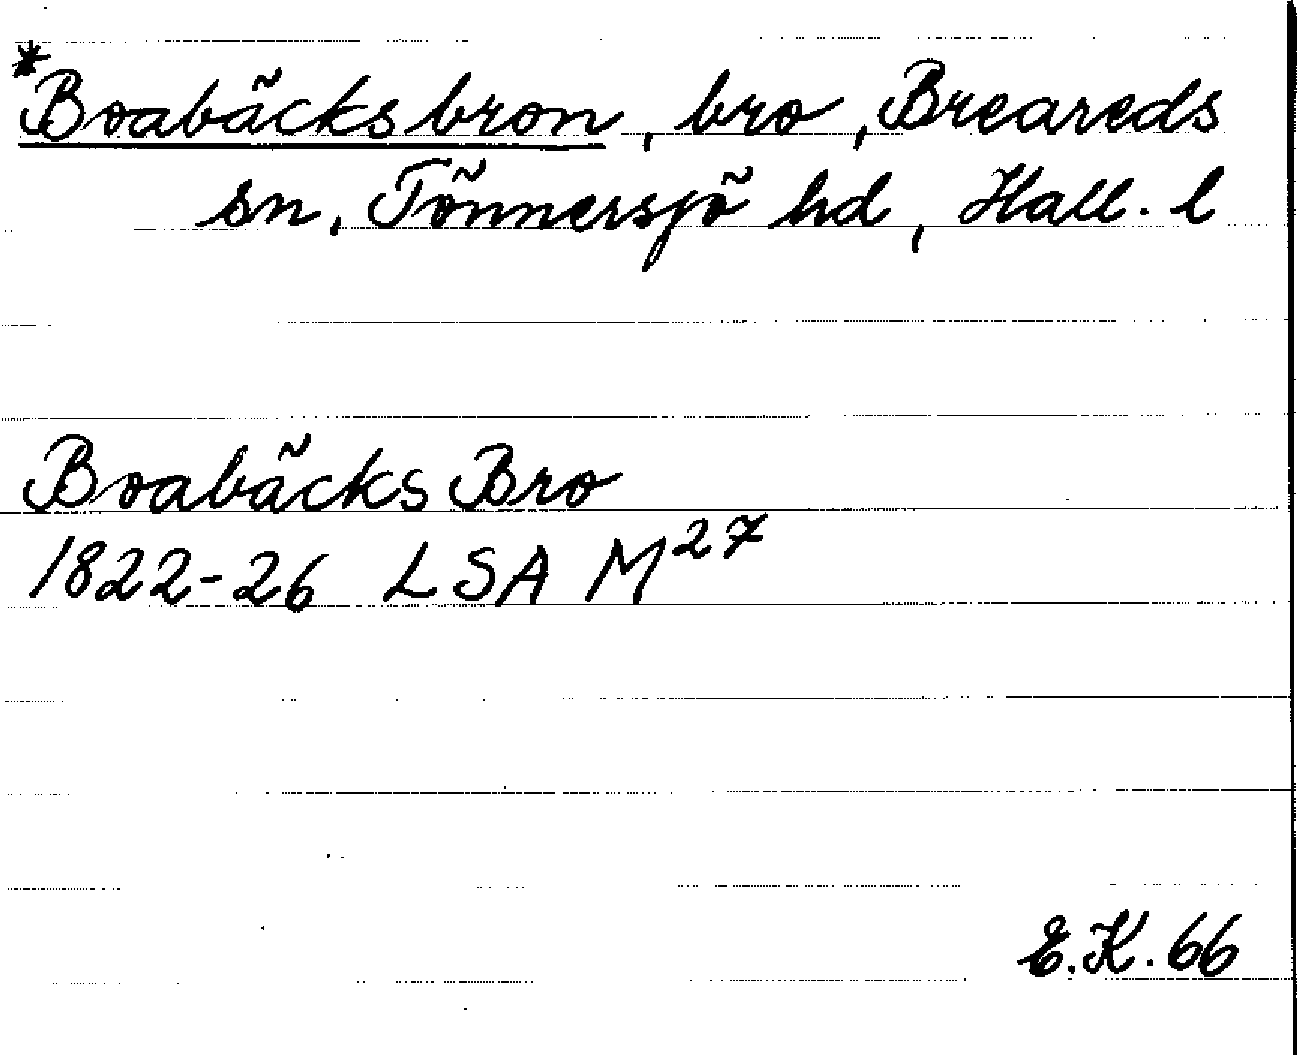 *Boabäcksbron, bro, Breareds
sn, Tönnersjö hd, Hall. l
Boabäcks Bro
1822-26 LSA M²⁷
E.K. 66